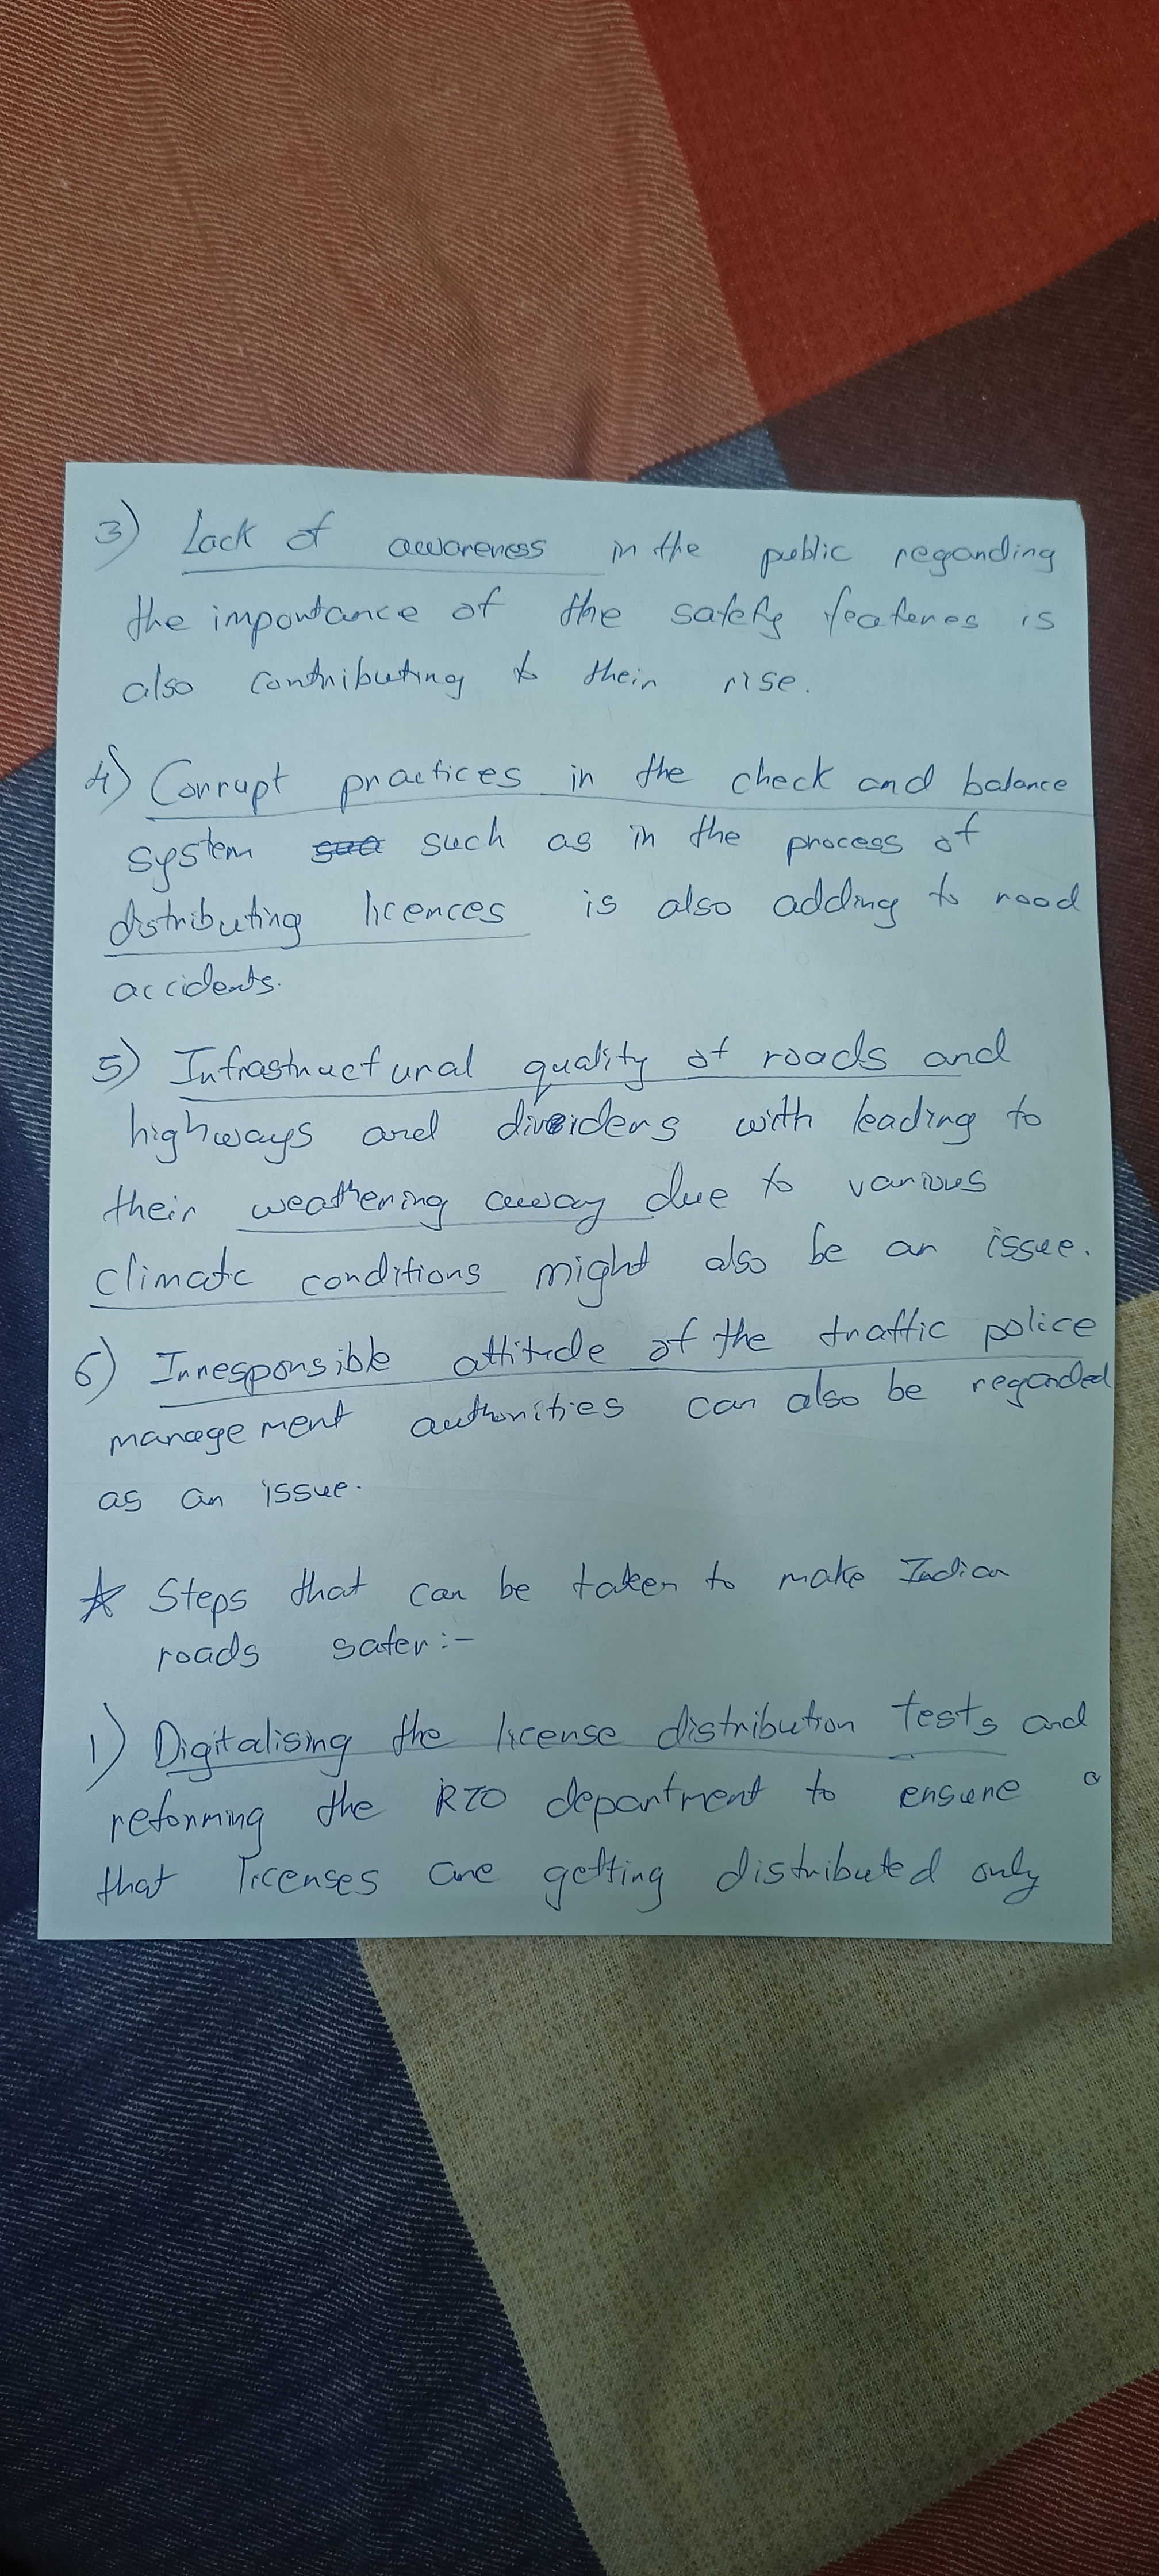 3) Lack of awareness in the public regarding
the importance of the safety features is
also contributing to their rise.
4) Corrupt practices in the check and balance
system such as in the process of
distributing licences is also adding to road
accidents.
5) Infrastructural quality of roads and
highways and dividers with leading to
their weathering away due to various
climatic conditions might also be an issue.
6) Irresponsible attitude of the traffic police
management authorities can also be regarded
as an issue.
☆ Steps that can be taken to make Indian
roads safer:-
1) Digitalising the license distribution tests and
reforming the RTO department to ensure a
that licenses are getting distributed only